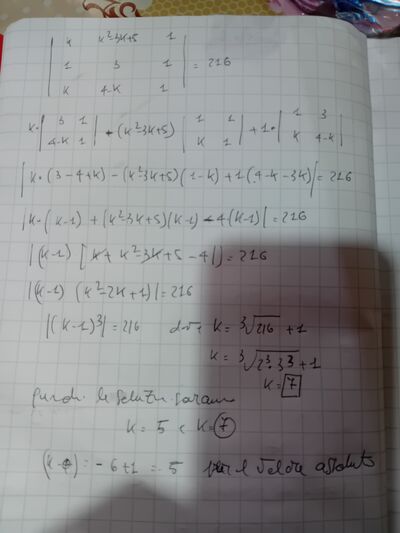 | k k²-3k+5 1 |
| 1 3 1 | = 216
| k 4-k 1 |
k· | 3 1 | - (k²-3k+5) | 1 1 | + 1· | 1 3 |
| 4-k 1 | | k 1 | | k 4-k |
|k·(3-4+k) - (k²-3k+5)(1-k) + 1(4-k-3k)| = 216
|k·(k-1) + (k²-3k+5)(k-1) - 4(k-1)| = 216
|(k-1) [k + k²-3k+5-4]| = 216
|(k-1) (k²-2k+1)| = 216
|(k-1)³| = 216 k = ³√216 + 1
k = ³√2³·3³ + 1
k = 7
quindi le soluzioni saranno
k = 5 e k = 7
= -6+1 = -5 per il valore assoluto